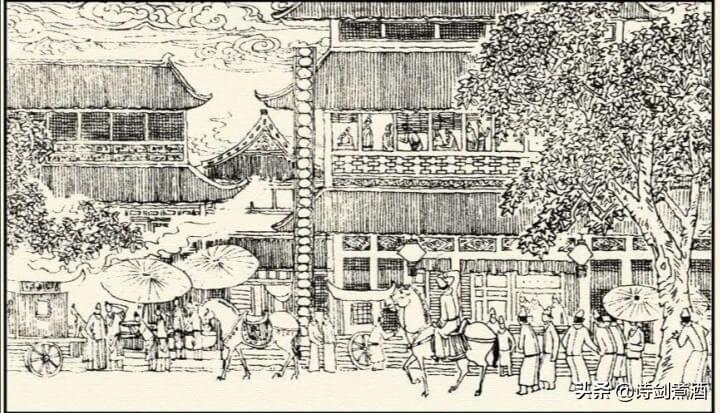 头条 @诗剑煮酒